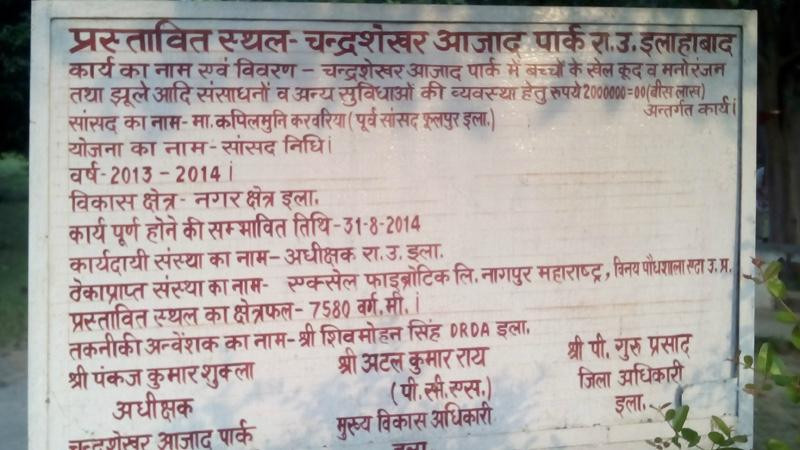 प्रस्तावित स्थल- चन्द्रशेखर आजाद पार्क रा. उ. इलाहाबाद
कार्य का नाम एवं विवरण - चन्द्रशेखर आजाद पार्क में बच्चों के खेल कूद व मनोरंजन
तथा झूले आदि संसाधनों व अन्य सुविधाओं की व्यवस्था हेतु रुपये 2000000=00 (बीस लाख)
अन्तर्गत कार्य।
सांसद का नाम- मा. कपिलमुनि करवरिया (पूर्व सांसद फूलपुर इला.)
योजना का नाम- सांसद निधि।
वर्ष-2013 - 2014।
विकास क्षेत्र- नगर क्षेत्र इला.
कार्य पूर्ण होने की सम्भावित तिथि-31-8-2014
कार्यदायी संस्था का नाम- अधीक्षक रा. उ. इला.
ठेकाप्राप्त संस्था का नाम- एक्सेल फाइब्रोटिक लि. नागपुर महाराष्ट्र, विनय पौधशाला एटा उ. प्र.
प्रस्तावित स्थल का क्षेत्रफल- 7580 वर्ग. मी.।
तकनीकी अन्वेंशक का नाम-श्री शिवमोहन सिंह DRDA इला.
श्री पंकज कुमार शुक्ला श्री अटल कुमार राय श्री पी. गुरु प्रसाद
अधीक्षक (पी. सी. एस.) जिला अधिकारी
चन्द्रशेखर आजाद पार्क मुख्य विकास अधिकारी इला.
इला